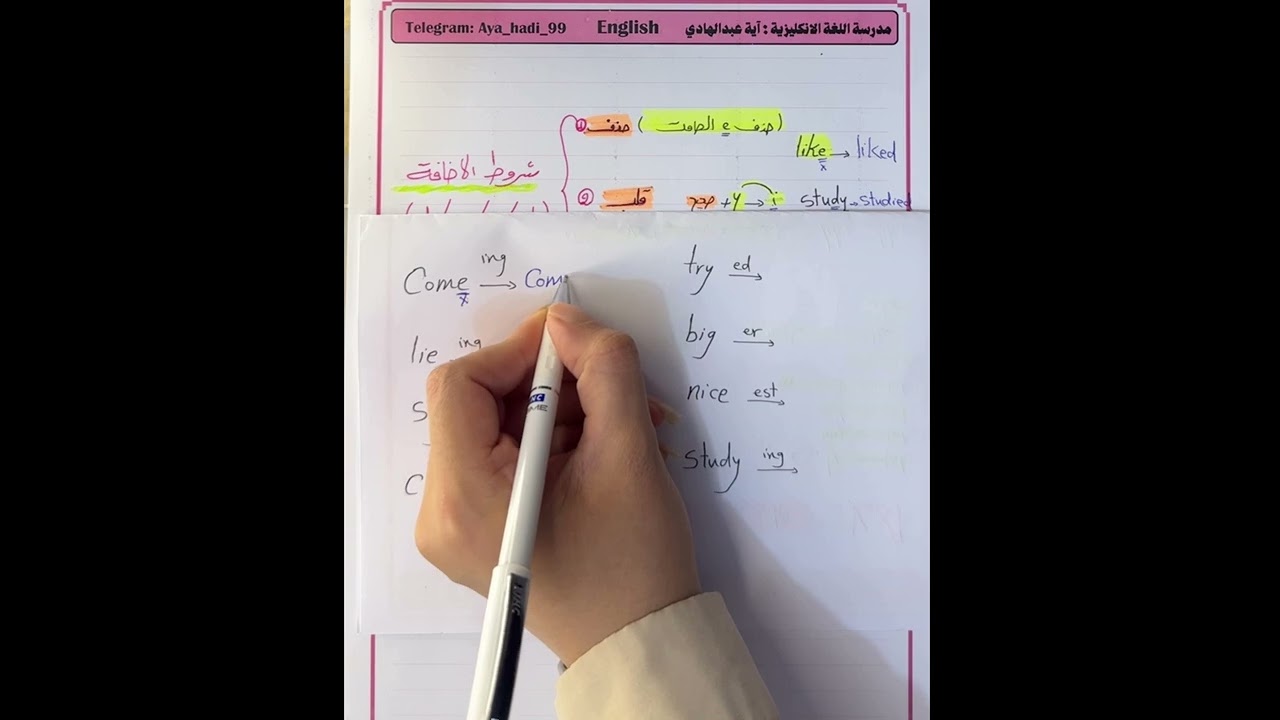 Telegram: Aya_hadi_99 English مدرسة اللغة الانكليزية : آية عبدالهادي
شروط الاضافة
① حذف (حذف e الصامت) like x → liked
② قلب صحيح + y → i study → studied
Come x ing → Com
lie ing
S
C
try ed →
big er →
nice est →
study ing →